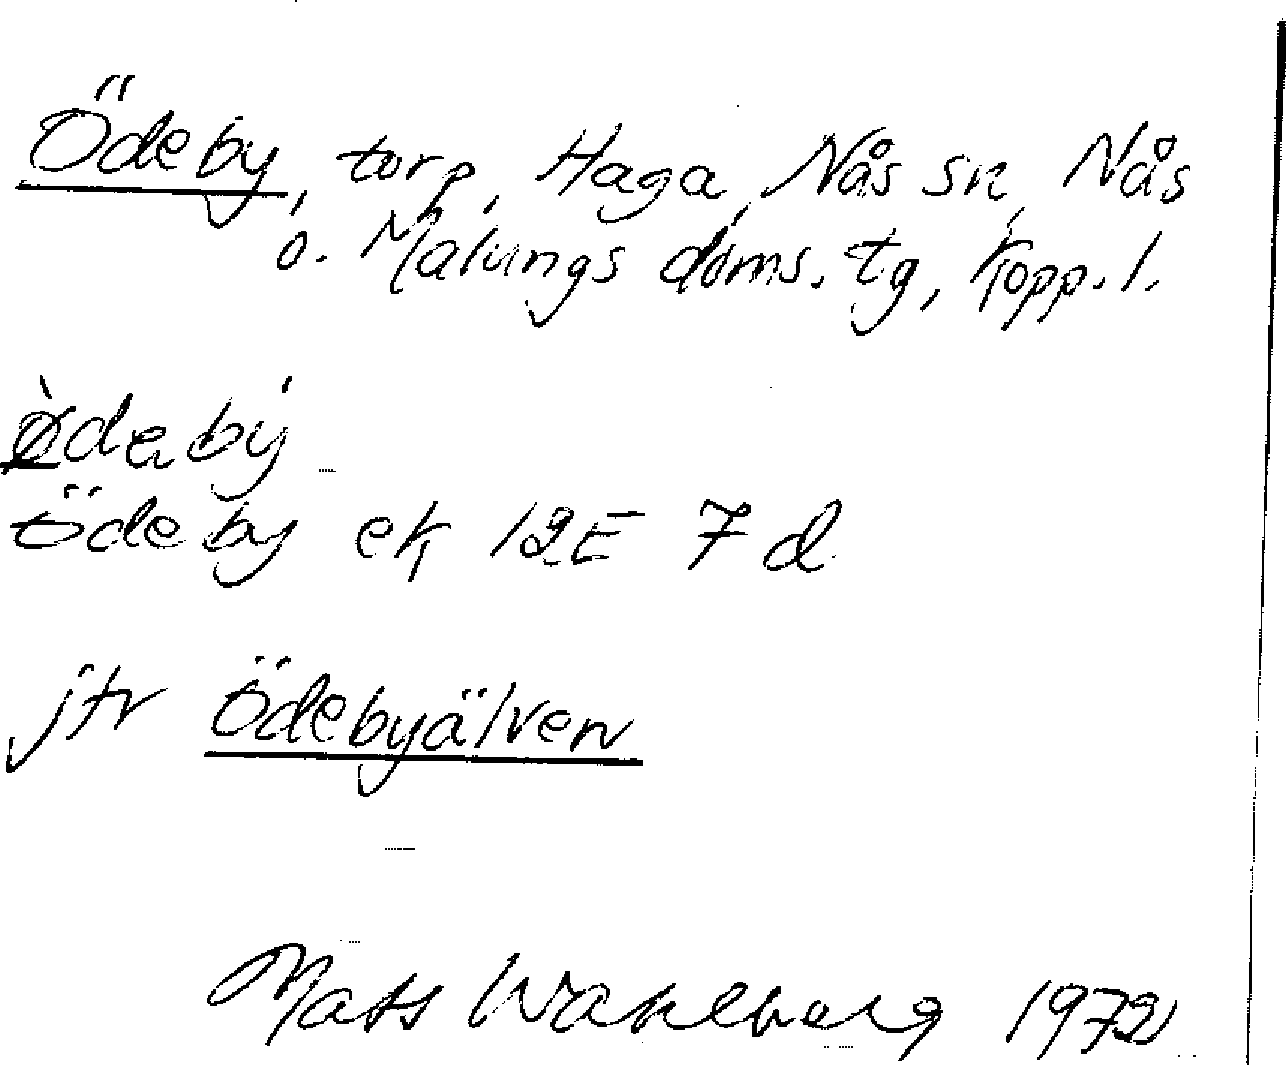 Ödeby, torp, Haga, Nås sn, Nås
o. Malungs doms. tg, Kopp. l.
ø̀dabý
Ödeby ek 12E 7d
jfr Ödebyälven
Mats Wahlberg 1972